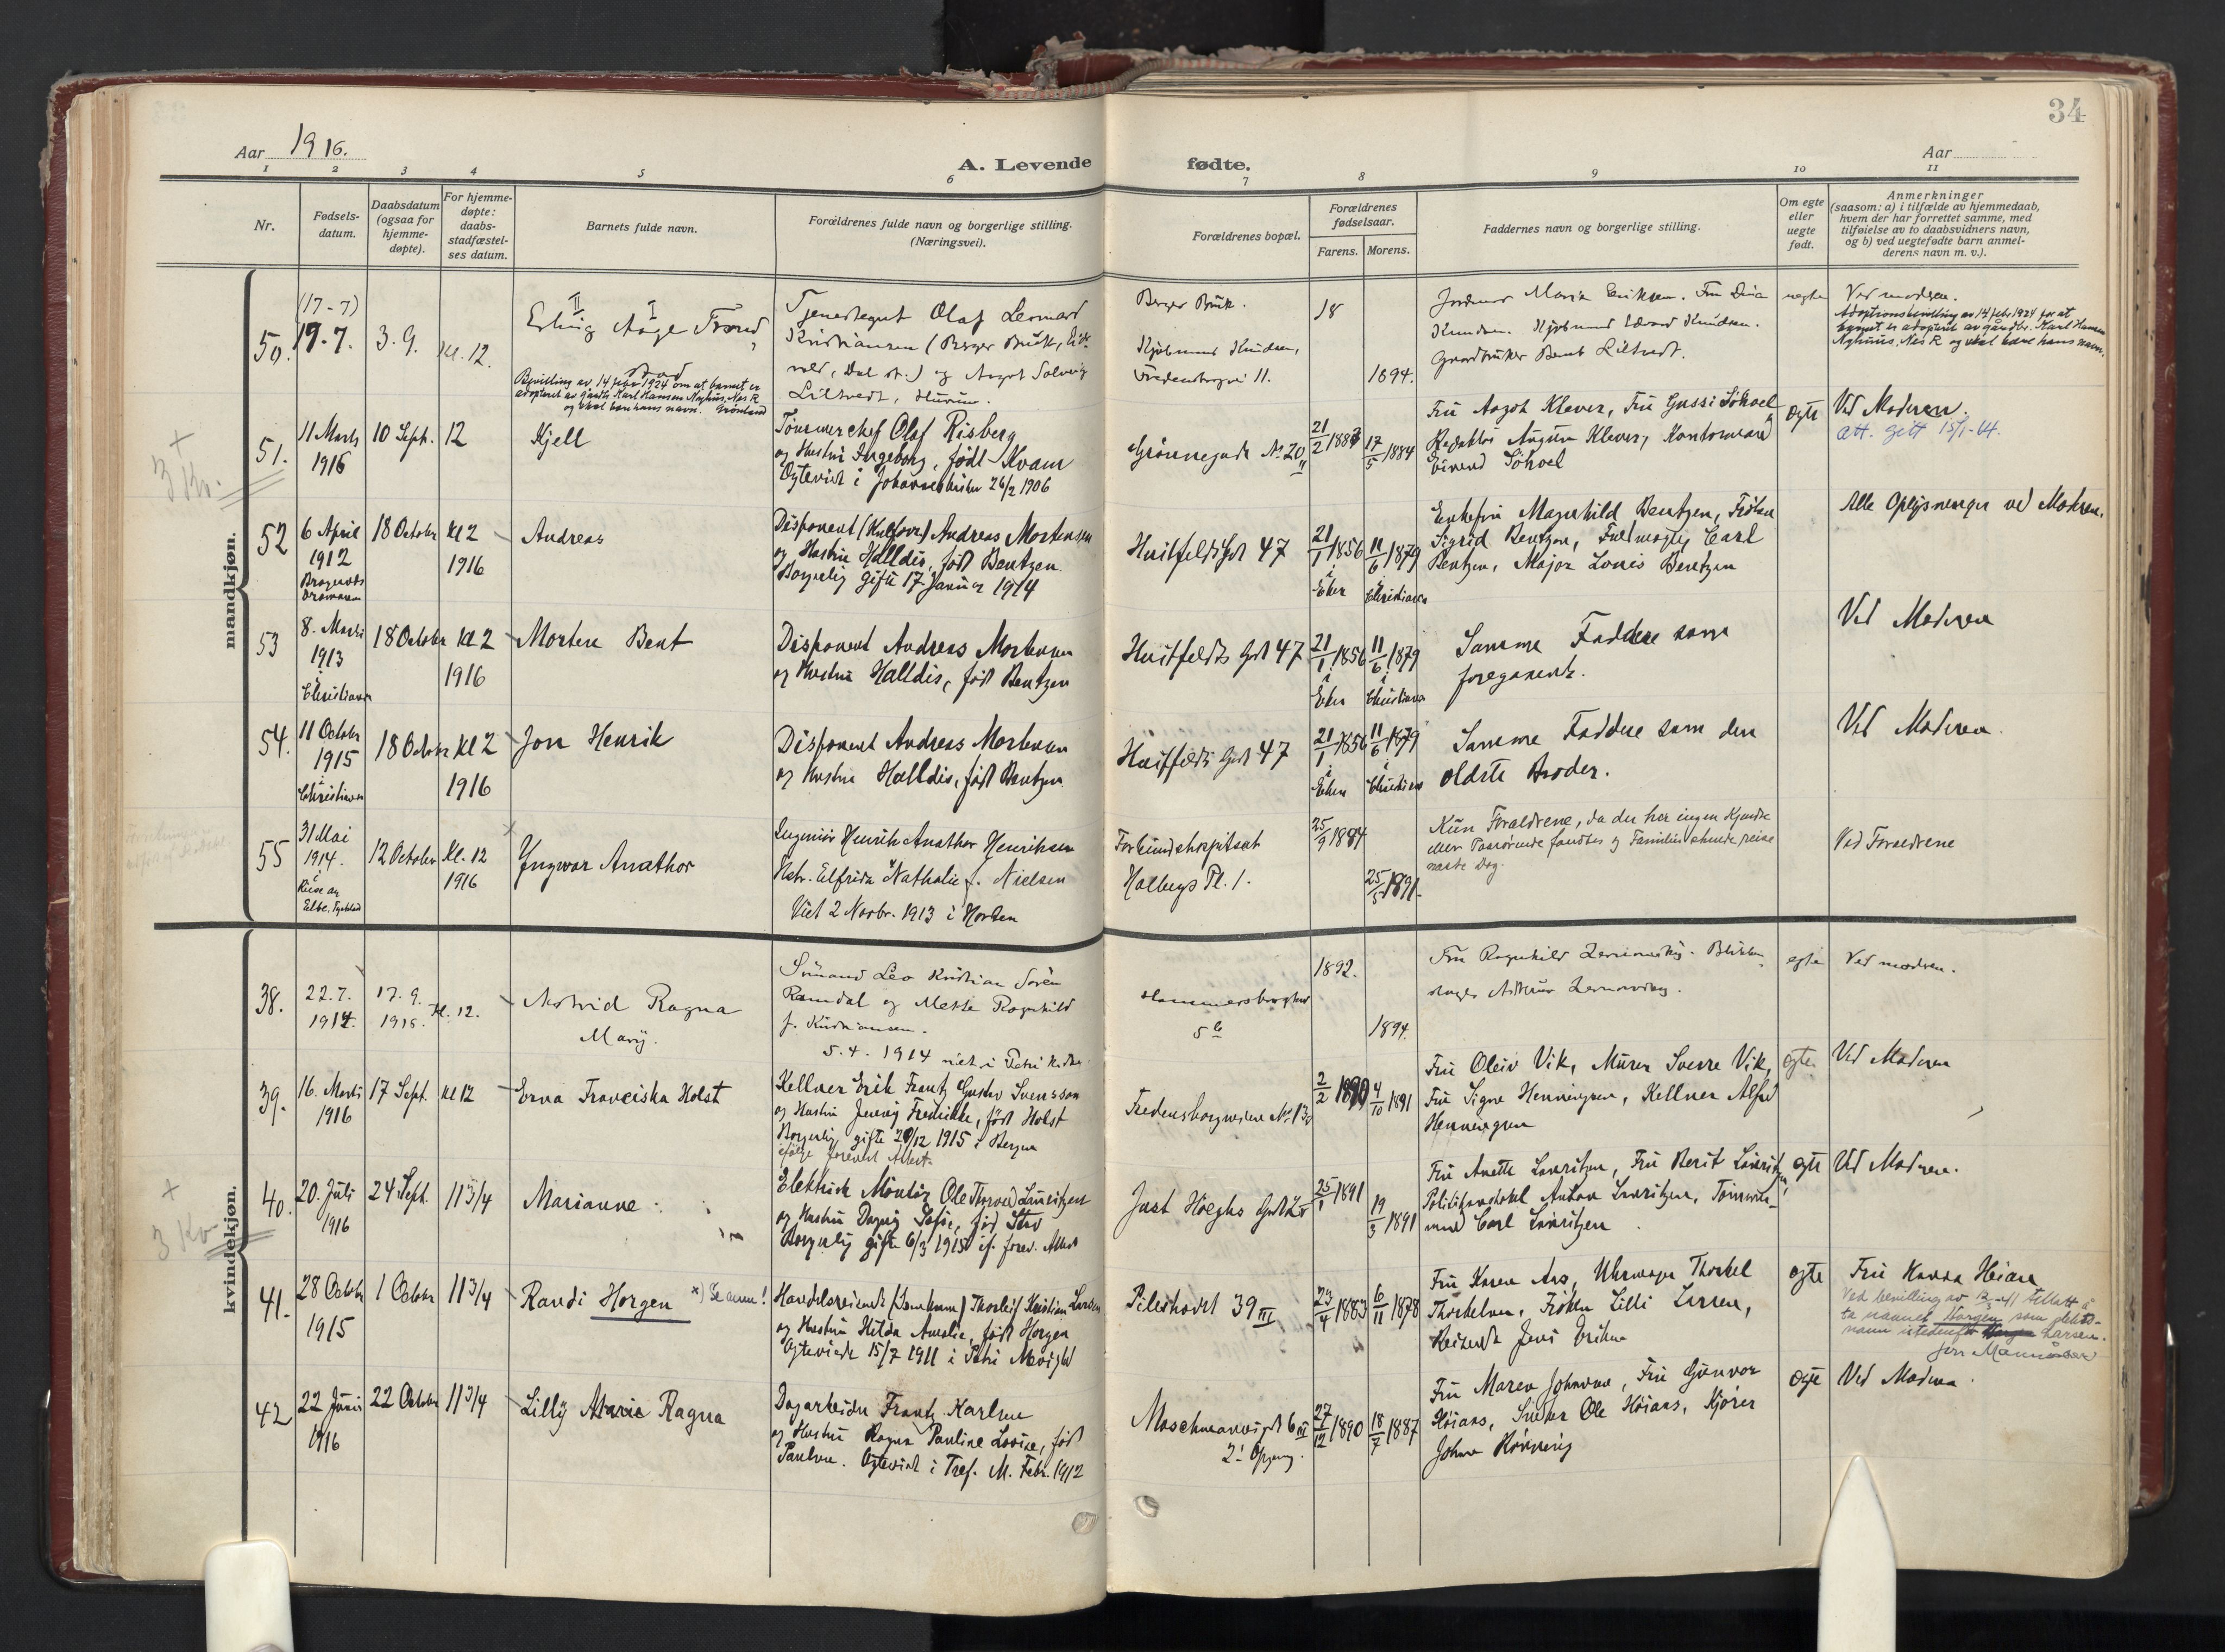 34
Aar 1916.
A. Levende fødte.
Aar
1 2 3 4 5 6 7 8 9 10 11
Nr.
Fødsels-
datum.
Daabsdatum
(ogsaa for
hjemme-
døpte).
For hjemme-
døpte:
daabs-
stadfæstel-
ses datum.
Barnets fulde navn.
Forældrenes fulde navn og borgerlige stilling.
(Næringsvei).
Forældrenes bopæl.
Forældrenes
fødselsaar.
Farens. Morens.
Faddernes navn og borgerlige stilling.
Om egte
eller
uegte
født.
Anmerkninger
(saasom: a) i tilfælde av hjemmedaab,
hvem der har forrettet samme, med
tilføielse av to daabsvidners navn,
og b) ved uegtefødte barn anmel-
derens navn m. v.).
mandkjøn.
50.
(17-7)
19.7.
3.9.
kl. 12.
II I
Erling Aage Trond
Bevilling av 14 febr 1924 om at barnet er
adopteret av gårdb. Karl Hansen Nyhuus, Nes R
og skal bære hans navn.
Tjenestegut Olaf Leonard
Kristiansen (Berger Bruk, Eids-
vold, Dal st.) og Aagot Solveig
Liltvedt, Hurum.
Berger Bruk.
Kjøbmand Knudsen,
Fredensborgvei 11.
18
1894.
Jordmor Maria Eriksen. Fru Dina
Knudsen. Kjøbmand Edvard Knudsen.
Gaardbruker Bent Liltvedt.
uegte
Ved moderen.
Adoptionsbevilling av 14 febr 1924 for at
barnet er adopteret av gårdbr. Karl Hansen
Nyhuus, Nes R og skal bære hans navn.
+
3 Kr.
51.
11 Marts
1916
10 Sept.
12
Kjell
Tømmerchef Olaf Risberg
og Hustru Ingeborg, født Kvam
Egteviet i Johanneskirken 26/2 1906
Grønnegade No 20 II
21/2 1887
17/5 1884
Fru Aagot Klever, Fru Gussi Sohoel
Redaktør August Klever, Kontormand
Eivind Sohoel
egte
Ved Moderen.
Att. gitt 15/1-44.
52
6 April
1912
Bragernes
Drammen
18 October
Kl 2
1916
Andreas
Disponent (Kulforr) Andreas Mortensen
og Hustru Halldis, født Bentzen.
Borgerlig gifte 17. Januar 1914
Huitfeldtsgt 47
21/1 1856
i
Eker
11/6 1879
i
Christiania
Enkefru Magnhild Bentzen, Frøken
Sigrid Bentzen, Fuldmægtig Carl
Bentzen, Major Louis Bentzen
Alle Oplysninger ved Moderen.
53
8. Marts
1913
i
Christiania
18 October
Kl 2
1916
Morten Bent
Disponent Andreas Mortensen
og Hustru Halldis, født Bentzen
Huitfeldts Gt 47
21/1 1856
i
Eker
11/6 1879
i
Christiania
Samme Faddere som
foregaaende.
Ved Moderen
54.
11 October
1915
i
Christiania
18 October
Kl 2
1916
Jon Henrik
Disponent Andreas Mortensen
og Hustru Halldis, født Bentzen
Huitfeldts Gt 47
21/1 1856
i
Eker
11/6 1879
i
Christiania
Samme Faddere som den
ældste Broder.
Ved Moderen.
55
31 Mai
1914.
i
Riesa an
Elbe, Tyskland
12 October
Kl. 12
1916
Yngvar Anathor
Ingeniør Henrik Anathor Henriksen
Hstr. Elfrida Nathalie f. Nielsen
Viet 2 Novbr. 1913 i Horten
Forbundshospitset
Holbergs Pl. 1.
25/9 1884
25/5 1891.
Kun Forældrene, da der her ingen Kjendte
eller Paarørende fandtes og Familien skulde reise
næste Dag.
Ved Forældrene
kvindekjøn.
38.
22.7.
1914.
17.9.
1916.
kl. 12.
Astrid Ragna
Mary.
Sømand Leo Kristian Søren
Ramdal og Mette Ragnhild
f. Kristiansen.
5.4. 1914 viet i Petri Kirke
Hammersborggt
5 b
1892.
1894.
Fru Ragnhild
Ved moderen.
egte
39.
16. Marts
1916
17 Sept.
Kl 12
Erna Franciska Holst
Kellner Erik Frantz Gustav Svensson
og Hustru Jenny Fredrikke, født Holst
Borgerlig gifte 20/12 1915 i Bergen
ifølge forevist Attest.
Fredensborgveien No 13
2/2 1890
4/10 1891
Fru Oleiv Vik, Murer Sverre Vik,
Fru Signe Henningsen, Kellner Alfred
Henningsen
egte
Ved Moderen
+
3 Kr
40.
20. Juli
1916
24 Sept.
11 3/4
Marianne
Elektrisk Montør Ole Thorvald Lauritzen
og Hustru Dagny Sofie, født
Borgerlig gifte 6/3 1915 if. forev. Attest
Just Høeghs Gt
25/1 1891
19/3 1891
Fru Anette Lauritzen, Fru Berit Lauritzen,
Politikonstabel Anton Lauritzen, Tømmer-
mand Carl Lauritzen
egte
Ved Moderen.
41.
28 October
1915
1 October
11 3/4
Randi Horgen x) Se anm!
Handelsreisende Thorleif Kristian Larsen
og Hustru Hilda Amalie, født Horgen
Egteviede 15/7 1911 i Petri Menighed
Pilestrædet 39 III
23/4 1883
6/11 1878
Fru Karen Aas, Uhrmager Thorkel
Thorkelsen, Frøken Lilli Larsen,
Reisende Jens Eriksen
egte
Fru Hanna Heiare
Ved bevilling av 12/3-41 tillatt å
ta navnet Horgen som slekts-
navn istedenfor Larsen.
42
22 Juni
1916
22 October
11 3/4
Lilly Marie Ragna
Dagarbeider Frantz Karlsen
og Hustru Ragna Pauline Lovise, født
Paulsen. Egteviet i Tref. M. Febr. 1912
6 III
2' Opgang.
27/12 1890
18/7 1887
Fru Maren Johnsen, Fru Gunvor
Høiaas, Snekker Ole Høiaas, Kjører
Johan Rønning
egte
Ved Moderen.